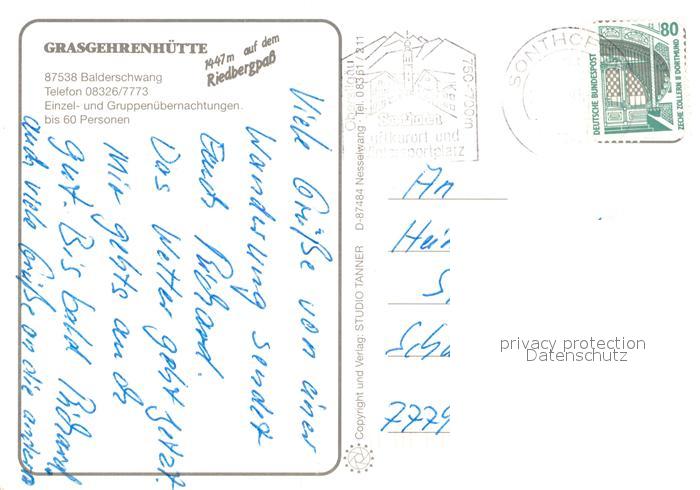 GRASGEHRENHÜTTE
1447m auf dem
Riedbergpaß
87538 Balderschwang
Telefon 08326/7773
Einzel- und Gruppenübernachtungen.
bis 60 Personen
Viele Grüße von einer
Wanderung sendet
Euch Richard.
Das Wetter geht jetzt.
Mir gehts auch
gut. Bis bald Richard
auch viele Grüße an die anderen
Copyright und Verlag: STUDIO TANNER D-87484 Nesselwang · Tel. 08361 / 211
750-1700m
Luftkurort und
Wintersportplatz
SONTHOF
80
DEUTSCHE BUNDESPOST
ZECHE ZOLLERN II DORTMUND
An
Hei
S
Scha
7779
privacy protection
Datenschutz